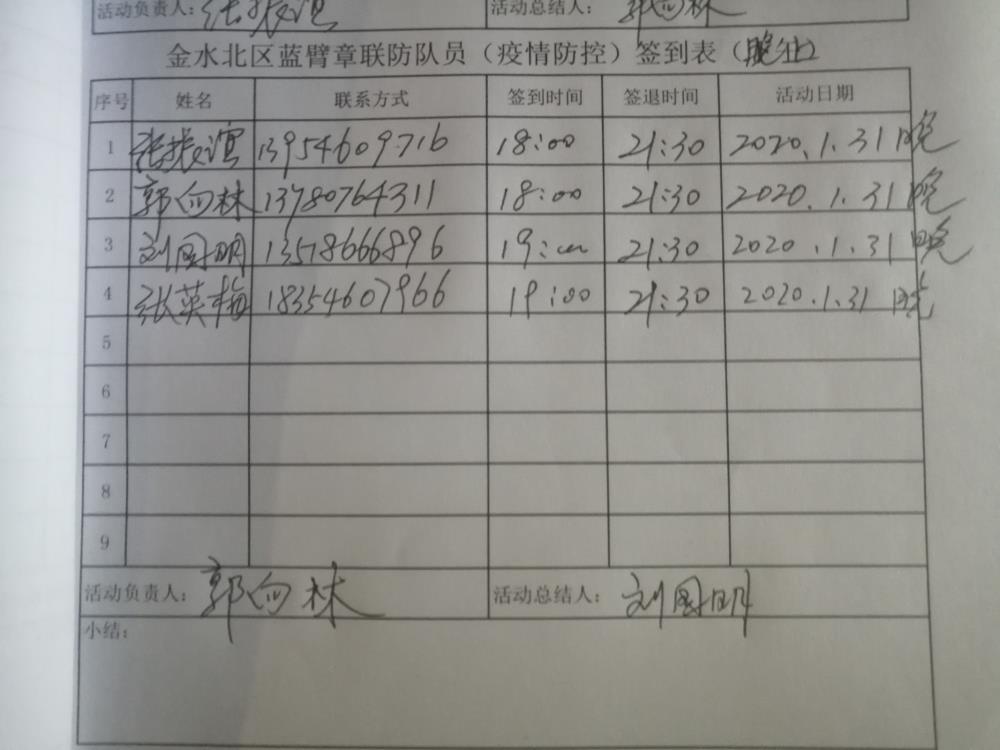 活动负责人：张振谊 活动总结人：郭向林
金水北区蓝臂章联防队员（疫情防控）签到表（晚上）
序号 姓名 联系方式 签到时间 签退时间 活动日期
1 张振谊 13954609716 18:00 21:30 2020.1.31晚
2 郭向林 13780764311 18:00 21:30 2020.1.31晚
3 刘国明 13518666896 19:00 21:30 2020.1.31晚
4 张英梅 18354607966 19:00 21:30 2020.1.31晚
5
6
7
8
9
活动负责人：郭向林 活动总结人：刘国明
小结：